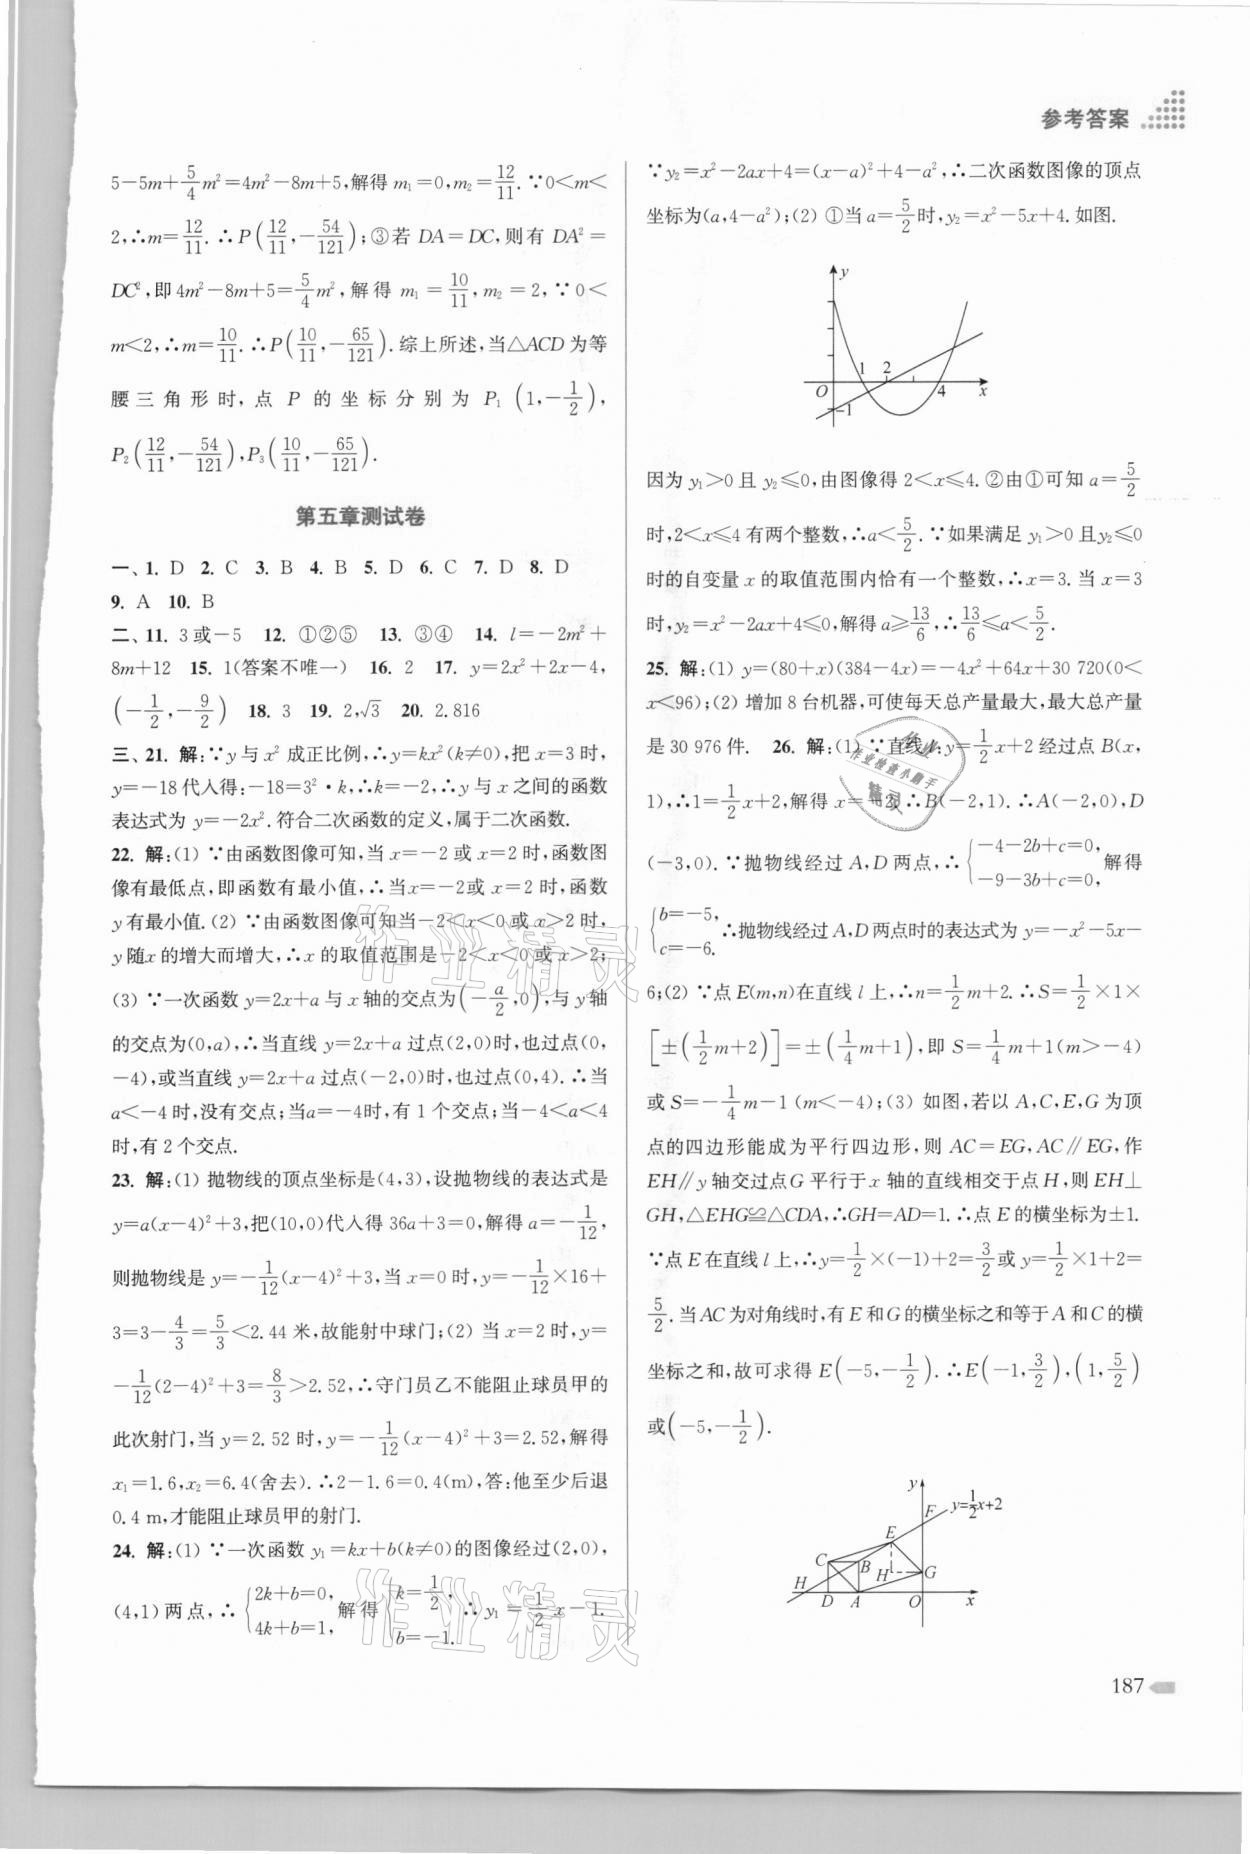 参考答案
5−5m+5/4m²=4m²−8m+5,解得 m₁=0,m₂=12/11.∵0<m<
2,∴m=12/11.∴P(12/11,−54/121);③若 DA=DC,则有 DA²=
DC²,即 4m²−8m+5=5/4m²,解得 m₁=10/11,m₂=2,∵0<
m<2,∴m=10/11.∴P(10/11,−65/121).综上所述,当△ACD 为等
腰三角形时,点 P 的坐标分别为 P₁(1,−1/2),
P₂(12/11,−54/121),P₃(10/11,−65/121).
第五章测试卷
一、1. D 2. C 3. B 4. B 5. D 6. C 7. D 8. D
9. A 10. B
二、11. 3或−5 12. ①②⑤ 13. ③④ 14. l=−2m²+
8m+12 15. 1(答案不唯一) 16. 2 17. y=2x²+2x−4,
(−1/2,−9/2) 18. 3 19. 2,√3 20. 2.816
三、21. 解:∵y 与 x² 成正比例,∴y=kx²(k≠0),把 x=3 时,
y=−18代入得:−18=3²·k,∴k=−2,∴y 与 x 之间的函数
表达式为 y=−2x².符合二次函数的定义,属于二次函数.
22. 解:(1) ∵由函数图像可知,当 x=−2 或 x=2 时,函数图
像有最低点,即函数有最小值,∴当x=−2或 x=2 时,函数
y 有最小值.(2) ∵由函数图像可知当−2<x<0 或 x>2 时,
y 随x 的增大而增大,∴x 的取值范围是−2<x<0 或 x>2;
(3) ∵一次函数 y=2x+a 与 x 轴的交点为(−a/2,0),与 y 轴
的交点为(0,a),∴当直线 y=2x+a 过点(2,0)时,也过点(0,
−4),或当直线 y=2x+a 过点(−2,0)时,也过点(0,4).∴当
a<−4 时,没有交点;当a=−4时,有 1 个交点;当−4<a<4
时,有 2 个交点.
23. 解:(1) 抛物线的顶点坐标是(4,3),设抛物线的表达式是
y=a(x−4)²+3,把(10,0)代入得 36a+3=0,解得 a=−1/12,
则抛物线是 y=−1/12(x−4)²+3,当 x=0 时,y=−1/12×16+
3=3−4/3=5/3<2.44 米,故能射中球门;(2) 当 x=2 时,y=
−1/12(2−4)²+3=8/3>2.52,∴守门员乙不能阻止球员甲的
此次射门,当 y=2.52 时,y=−1/12(x−4)²+3=2.52,解得
x₁=1.6,x₂=6.4(舍去).∴2−1.6=0.4(m),答:他至少后退
0.4 m,才能阻止球员甲的射门.
24. 解:(1) ∵一次函数 y₁=kx+b(k≠0)的图像经过(2,0),
(4,1)两点,∴{2k+b=0, 4k+b=1, 解得{k=1/2, b=−1. ∴y₁=1/2x−1.
∵y₂=x²−2ax+4=(x−a)²+4−a²,∴二次函数图像的顶点
坐标为(a,4−a²);(2) ①当 a=5/2时,y₂=x²−5x+4.如图.
y
1 2
O 4 x
−1
因为 y₁>0 且 y₂≤0,由图像得 2<x≤4.②由①可知 a=5/2
时,2<x≤4 有两个整数,∴a<5/2.∵如果满足 y₁>0 且y₂≤0
时的自变量 x 的取值范围内恰有一个整数,∴x=3.当 x=3
时,y₂=x²−2ax+4≤0,解得 a≥13/6,∴13/6≤a<5/2.
25. 解:(1) y=(80+x)(384−4x)=−4x²+64x+30 720(0<
x<96);(2) 增加 8 台机器,可使每天总产量最大,最大总产量
是 30 976 件. 26. 解:(1) ∵直线 l:y=1/2x+2 经过点 B(x,
1),∴1=1/2x+2,解得 x=−2,∴B(−2,1).∴A(−2,0),D
(−3,0).∵抛物线经过 A,D 两点,∴{−4−2b+c=0, −9−3b+c=0, 解得
{b=−5, c=−6. ∴抛物线经过 A,D 两点时的表达式为 y=−x²−5x−
6;(2) ∵点 E(m,n)在直线 l 上,∴n=1/2m+2.∴S=1/2×1×
[±(1/2m+2)]=±(1/4m+1),即 S=1/4m+1(m>−4)
或 S=−1/4m−1 (m<−4);(3) 如图,若以 A,C,E,G 为顶
点的四边形能成为平行四边形,则 AC=EG,AC∥EG,作
EH∥y 轴交过点G 平行于 x 轴的直线相交于点 H,则 EH⊥
GH,△EHG≌△CDA,∴GH=AD=1.∴点 E 的横坐标为±1.
∵点 E 在直线 l 上,∴y=1/2×(−1)+2=3/2或 y=1/2×1+2=
5/2.当 AC 为对角线时,有 E 和 G 的横坐标之和等于 A 和 C 的横
坐标之和,故可求得 E(−5,−1/2).∴E(−1,3/2),(1,5/2)
或(−5,−1/2).
y
F y=1/2x+2
E
C B H G
H D A O x
187
作业精灵
作业精灵
作业
作业检查小助手
精灵